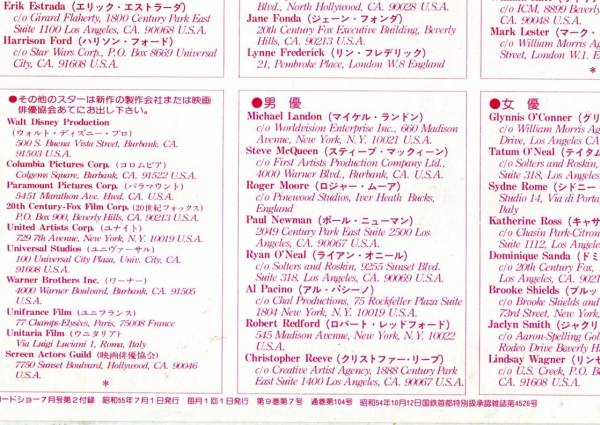 Erik Estrada (エリック・エストラーダ)
c/o Girard Flaherty, 1800 Century Park East
Suite 1100 Los Angeles, CA. 90068 U.S.A.
Harrison Ford (ハリソン・フォード)
c/o Star Wars Corp., P.O. Box 8669 Universal
City, CA. 91608 U.S.A.
●その他のスターは新作の製作会社または映画
俳優協会あてにお出し下さい。
Walt Disney Production
(ウォルト・ディズニー・プロ)
500 S. Buena Vista Street, Burbank, CA.
91503 U.S.A.
Columbia Pictures Corp. (コロムビア)
Colgems Square, Burbank, CA. 91522 U.S.A.
Paramount Pictures Corp. (パラマウント)
5451 Marathon Ave. Hwd. CA. U.S.A.
20th Century-Fox Film Corp. (20世紀フォックス)
P.O. Box 900, Beverly Hills, CA. 90213 U.S.A.
United Artists Corp. (ユナイト)
729 7th Avenue, New York, N.Y. 10019 U.S.A.
Universal Studios (ユニヴァーサル)
100 Universal City Plaza, Univ. City, CA.
91608 U.S.A.
Warner Brothers Inc. (ワーナー)
4000 Warner Boulvard, Burbank, CA. 91505
U.S.A.
Unifrance Film (ユニフランス)
77 Champs-Elysées, Paris, 75008 France
Unitaria Film (ウニタリア)
Via Luigi Luciani 1, Roma, Italy
Screen Actors Guild (映画俳優協会)
7750 Sunset Boulvard, Hollywood, CA. 90046
U.S.A.
*
Blvd., North Hollywood, CA. 90028 U.S.A.
Jane Fonda (ジェーン・フォンダ)
20th Century Fox Executive Building, Beverly
Hills, CA. 90213 U.S.A.
Lynne Frederick (リン・フレデリック)
21, Pembroke Place, London W.8 England
●男 優
Michael Landon (マイケル・ランドン)
c/o Worldvision Enterprise Inc., 660 Madison
Avenue, New York, N.Y. 10021 U.S.A.
Steve McQueen (スティーブ・マックィーン)
c/o First Artists Production Company Ltd.,
4000 Warner Blvd., Burbank, CA. U.S.A.
Roger Moore (ロジャー・ムーア)
c/o Pinewood Studios, Iver Heath Bucks,
England
Paul Newman (ポール・ニューマン)
2049 Century Park East Suite 2500 Los
Angeles, CA. 90067 U.S.A.
Ryan O'Neal (ライアン・オニール)
c/o Solters and Roskin, 9255 Sunset Blvd.
Suite 318, Los Angeles, CA. 90069 U.S.A.
Al Pacino (アル・パシーノ)
c/o Chal Productions, 75 Rockfeller Plaza Suite
1804 New York, N.Y. 10019 U.S.A.
Robert Redford (ロバート・レッドフォード)
545 Madison Avenue, New York, N.Y. 10022
U.S.A.
Christopher Reeve (クリストファー・リーブ)
c/o Creative Artist Agency, 1888 Century Park
East Suite 1400 Los Angeles, CA. 90067 U.S.A.
c/o ICM, 8899 Beverly
CA. 90048 U.S.A.
Mark Lester (マーク・
c/o William Morris Ag
Street, London W.1. E
*
●女 優
Glynnis O'Conner (グリ
c/o William Morris Ag
Drive, Los Angeles CA
Tatum O'Neal (テイタム
c/o Solters and Roskin,
Suite 318, Los Angeles,
Sydne Rome (シドニー
Studio 14, Via di Porta
Italy
Katherine Ross (キャサ
c/o Chasin Park-Citron
Suite 1112, Los Angeles
Dominique Sanda (ドミ
c/o 20th Century Fox,
Los Angeles, CA. 9021
Brooke Shields (ブルッ
c/o Brooke Shields and
73rd Street, New York,
Jaclyn Smith (ジャクリ
c/o Aaron-Spelling Gol
Rodeo Drive Beverly H
Lindsay Wagner (リンゼ
c/o U.S. Creek, P.O. B
Los Angeles, CA. 9160
ードショー7月号第2付録 昭和55年7月1日発行 毎月1回1日発行 第9巻第7号 通巻第104号 昭和54年10月12日国鉄首都特別扱承認雑誌第4526号